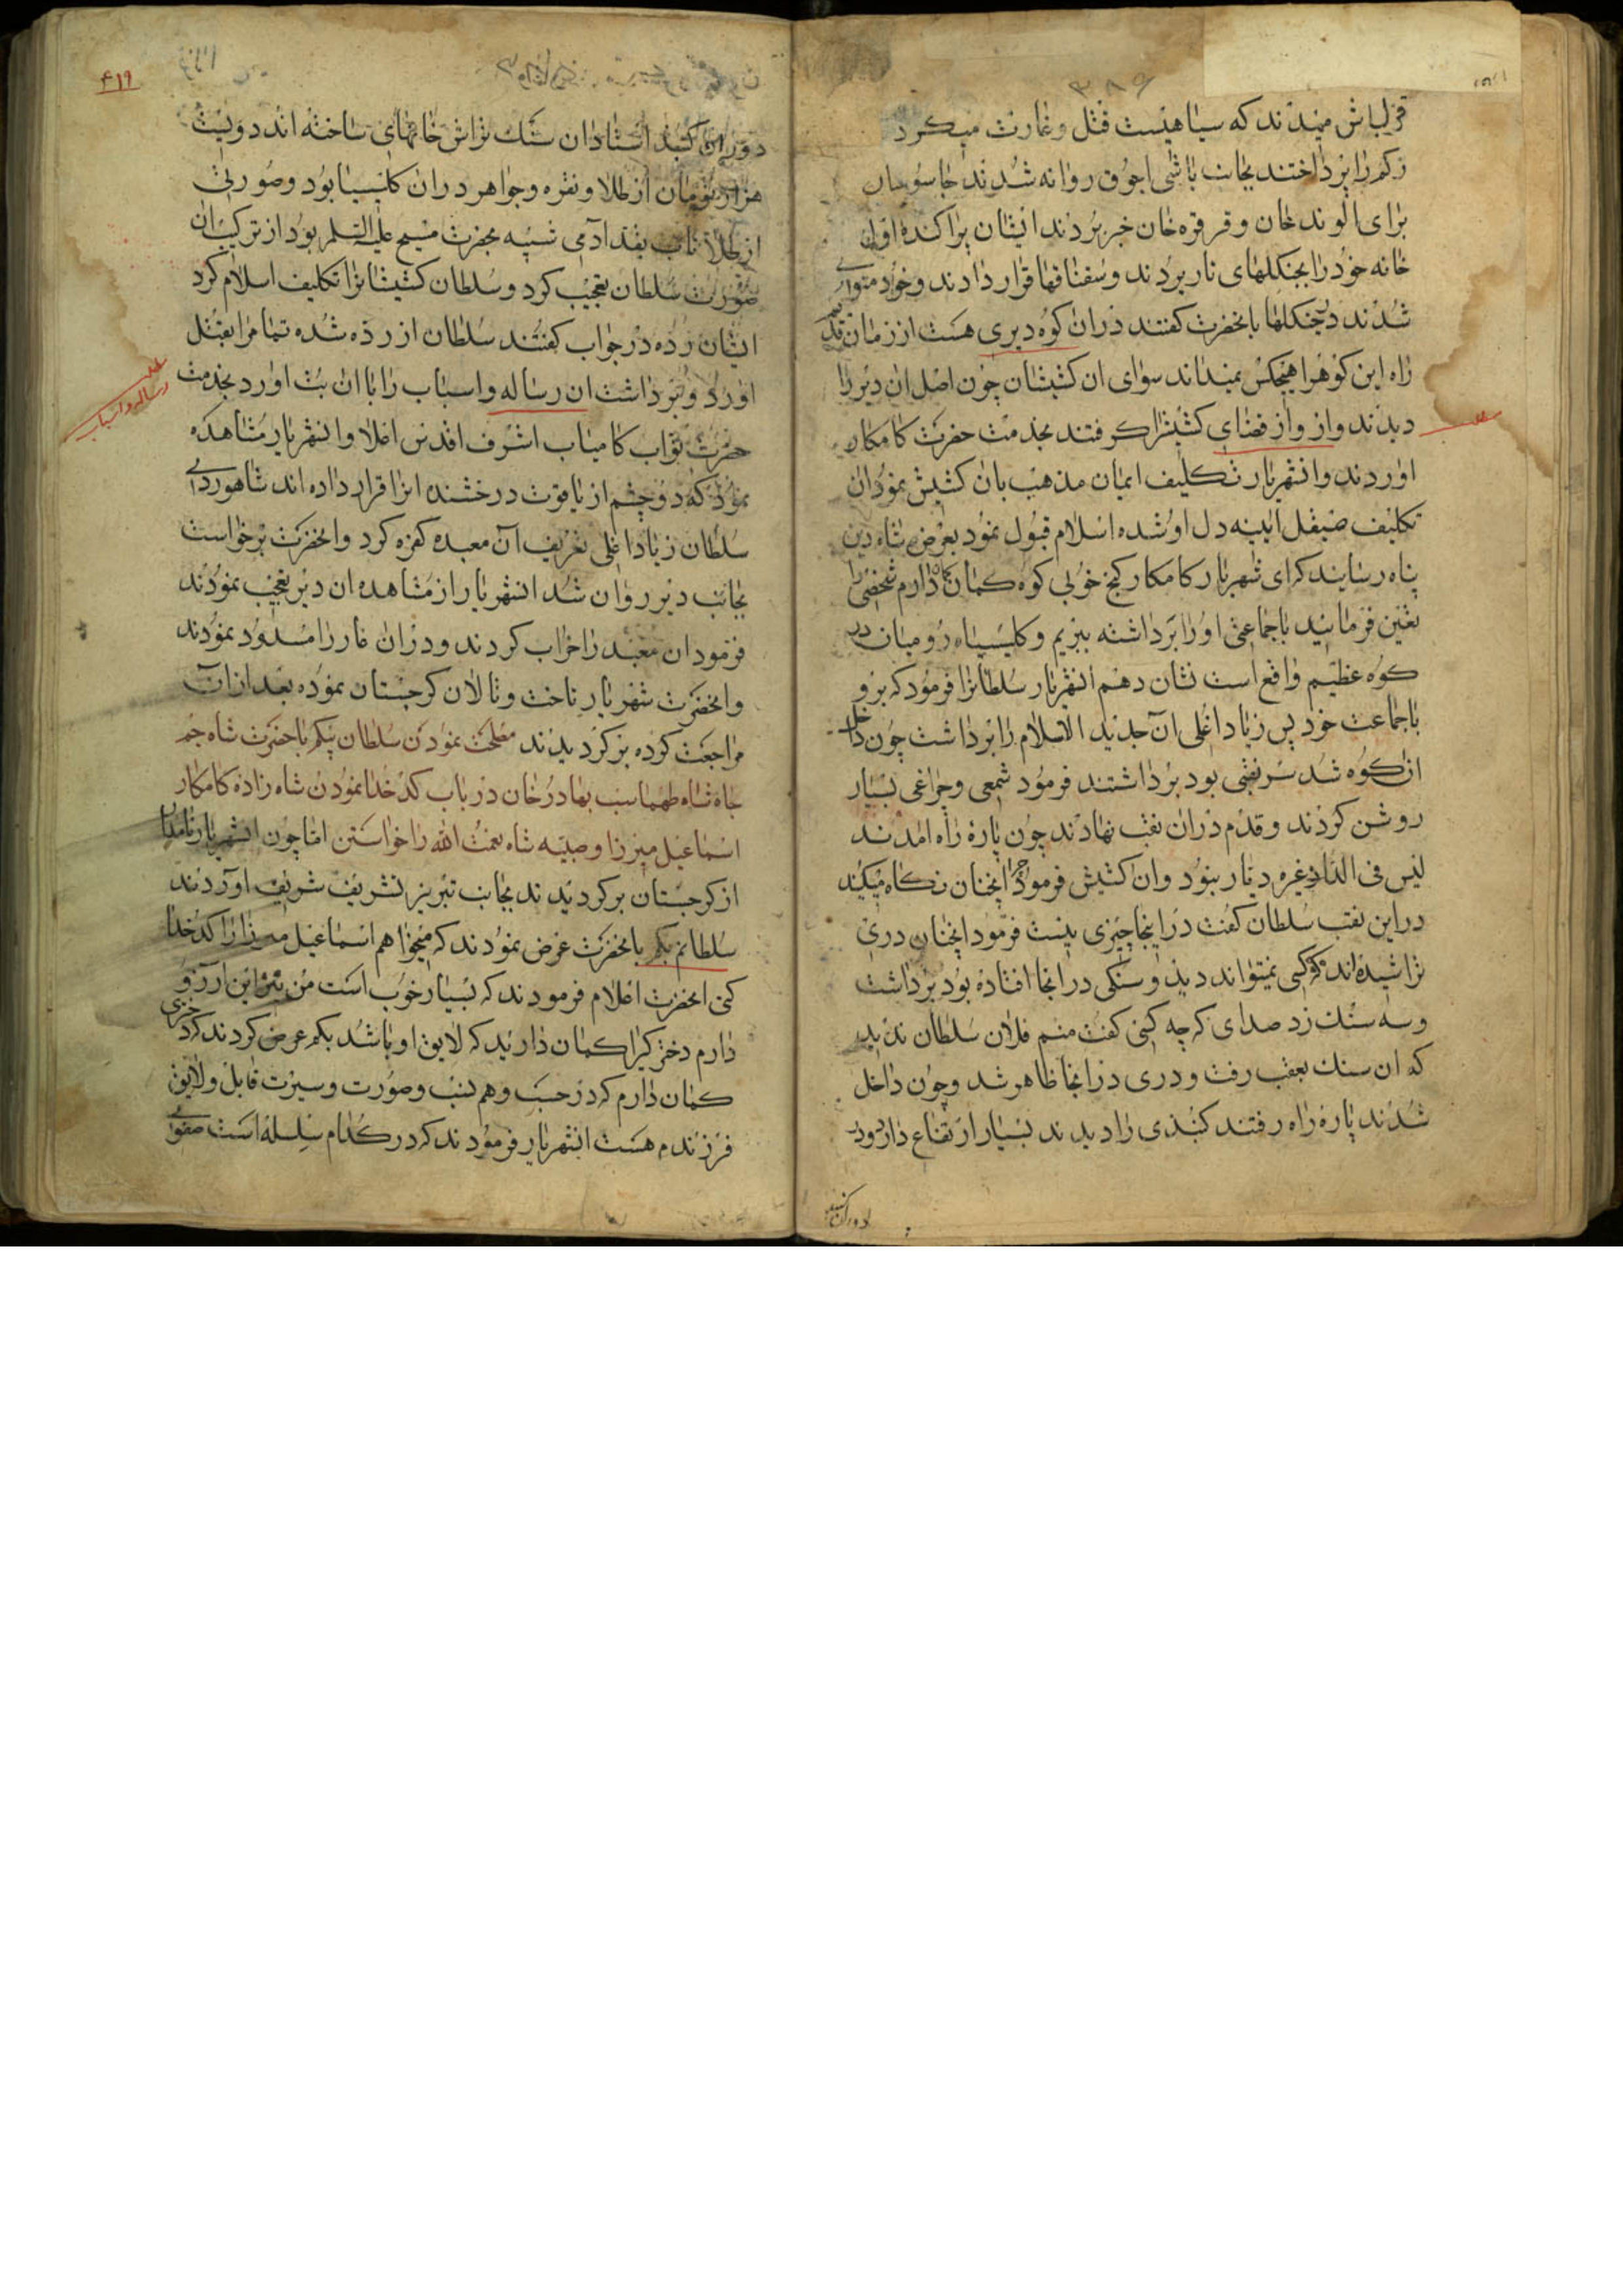 ۳۸۹
قزلباش میدیدند که سیاهیست قتل و غارت میکرد
زکم را پرداختند بجانب باشی اجوق روانه شدند جاسوسان
برای الوند خان و قرقره خان خبر بردند ایشان پراکنده اول
خانه خود را بجنکلهای نار بردند و سقناقها قرار دادند و خود متواری
شدند در جنکلها بانحضرت کفتند در ان کوه دیری هست از زمان قدیم
راه این کوه را هیچکس نمیداند سوای ان کشیشان چون اصل ان دیر را
دیدند و از قضای کشیش را کرفتند بخدمت حضرت کامکار
اوردند و انشهریار تکلیف ایمان مذهب بان کشیش نمود ان
تکلیف صیقل ایینه دل او شده اسلام قبول نمود بعرض شاه دین
پناه رسانید که ای شهریار کامکار کنج خوبی کوه کمان دارم شخصی را
تعین فرمائید با جماعتی او را برداشته ببریم و کلیسیاه رو میان در
کوه عظیم واقع است نشان دهم انشهریار سلطانرا فرمود که برو
با جماعت خود پس زیاد اغلی ان جدید الاسلام را برداشت چون داخل
ان کوه شد سر نقبی بود برداشتند فرمود شمعی و چراغی بسیار
روشن کردند و قدم در ان نقب نهادند چون پاره راه امدند
لیس فی الدار غیره دیار نبود و ان کشیش فرمود چرا انچنان نکاه میکیند
در این نقب سلطان کفت در اینجا چیزی نیست فرمود انچنان دری
تراشیده اند که کسی نمیتواند دید و سنکی در انجا افتاده بود برداشت
و سه سنک زد صدای که چه کسی کفت منم فلان سلطان ندید
که ان سنک بعقب رفت و دری در انجا ظاهر شد و چون داخل
شدند پاره راه رفتند کنبذی را دیدند بسیار ارتقاع دارد و در
دوران کنبد
۴۱۹
دوران کنبد استادان سنک تراش خانهای ساخته اند دویست
هزار تومان از طلا و نقره و جواهر در ان کلیسیا بود و صورتی
از طلا ناب بقد ادمی شبیه بحضرت مسیح علیه السلم بود از ترکیب ان
صورت سلطان تعجیب کرد و سلطان کشیشانرا تکلیف اسلام کرد
ایشان زده در جواب کفتند سلطان ازرده شده تمام را بقتل
اورد و برداشت ان رساله و اسباب را با ان بت اورد بخدمت
حضرت نواب کامیاب اشرف اقدس اعلا و انشهریار مشاهده
نمود که دو چشم از یاقوت درخشنده انرا قرار داده اند شاهوردی
سلطان زیاد اغلی تعریف آن معبده کفره کرد و انحضرت برخواست
بجانب دیر روان شد انشهریار از مشاهده ان دیر تعجیب نمودند
فرمود ان معبد را خراب کردند و در ان غار را مسدود نمودند
و انحضرت شهریار تاخت و تالان کرجستان نموده بعد از ان
مراجعت کرده برکردیدند مصلحت نمودن سلطان بیکم با حضرت شاه جم
جاه شاه طهماسب بهادر خان در باب کدخدا نمودن شاه زاده کامکار
اسماعیل میرزا و صبیه شاه نعمت الله را خواستن اما چون انشهریار نامدار
از کرجستان برکردیدند بجانب تبریز تشریف شریف اوردند
سلطانم بکم بانحضرت عرض نمودند که میخواهم اسماعیل میرزا را کدخدا
کنی انحضرت اعلام فرمودند که بسیار خوب است من نیز این ارزو
دارم دختر کرا کمان دارید که لایق او باشد بکم عرض کردند که دختری
کمان دارم که در حسب و هم نسب و صورت و سیرت قابل و لایق
فرزندم هست انشهریار فرمودند که در کدام سلسله است صفوی
رساله و اسباب